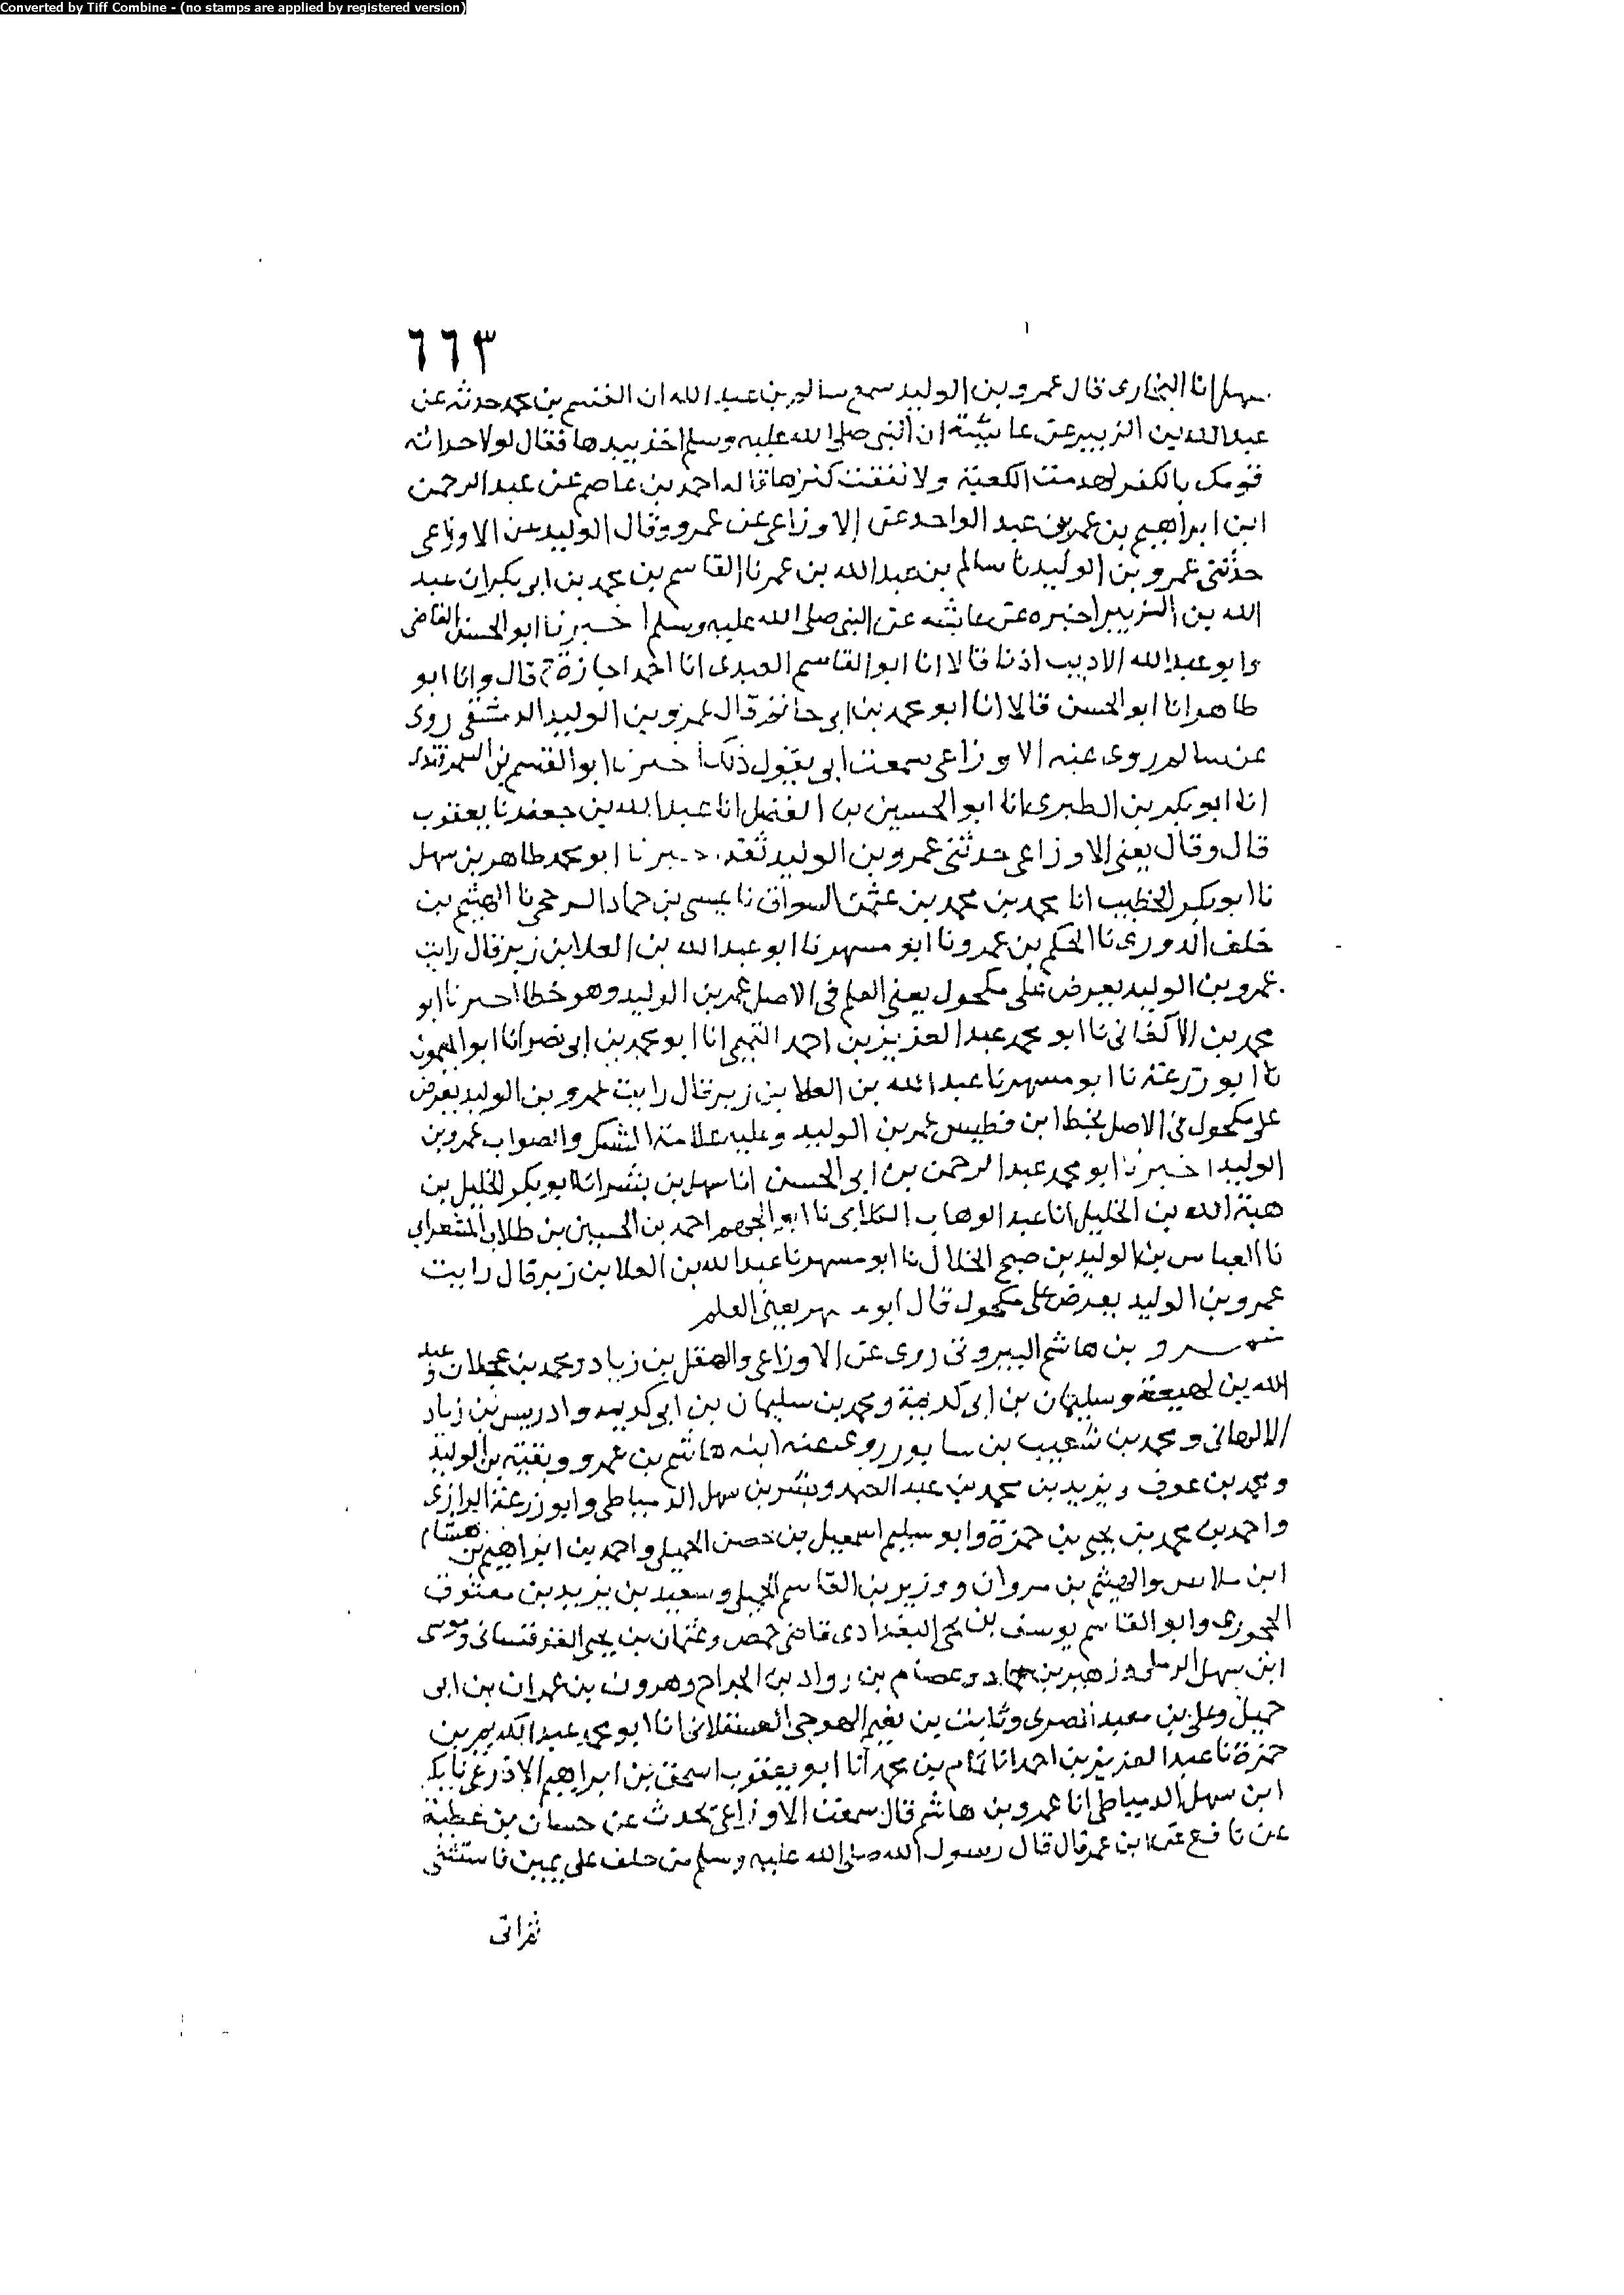 Converted by Tiff Combine - (no stamps are applied by registered version)
٦٦٣
سهل انا البخارى قال عمرو بن الوليد سمع سالم بن عبد الله ان القسم بن محمد حدثه عن
عبد الله بن الزبير عن عائشة ان النبى صلى الله عليه وسلم اخذ بيدها فقال لولا حداثه
قومك بالكفر لهدمت الكعبة ولانفقت كنزها قاله احمد بن عاصم عن عبد الرحمن
ابن ابراهيم بن عمر بن عبد الواحد عن الاوزاعى عن عمرو وقال الوليد عن الاوزاعى
حدثنى عمرو بن الوليد نا سالم بن عبد الله بن عمر نا القاسم بن محمد بن ابى بكر ان عبد
الله بن الزبير اخبره عن عائشه عن النبى صلى الله عليه وسلم اخبرنا ابو الحسن القاضى
وابو عبد الله الاديب اذنا قالا انا ابو القاسم العبدى انا احمد اجازة ح قال وانا ابو
طاهر انا ابو الحسن قالا انا ابو محمد بن ابى حاتم قال عمرو بن الوليد الدمشقى روى
عن سالم روى عنه الاوزاعى سمعت ابى يقول ذلك اخبرنا ابو القسم بن السمرقندى
انا ابو بكر بن الطبرى انا ابو الحسين بن الفضل انا عبد الله بن جعفر نا يعقوب
قال وقال يعنى الاوزاعى حدثنى عمرو بن الوليد ثقه اخبرنا ابو محمد طاهر بن سهل
نا ابو بكر الخطيب انا محمد بن محمد بن عثمن السواق نا عيسى بن حماد الرخجى نا الهيثم بن
خلف الدورى نا الحكم بن عمرو نا ابو مسهر نا ابو عبد الله بن العلا بن زبر قال رايت
عمرو بن الوليد يعرض على مكحول يعنى العلم فى الاصل عمر بن الوليد وهو خطا اخبرنا ابو
محمد بن الاكفانى نا ابو محمد عبد العزيز بن احمد التميمى انا ابو محمد بن ابى نصر انا ابو الميمون
نا ابو زرعة نا ابو مسهر نا عبد الله بن العلا بن زبر قال رايت عمرو بن الوليد يعرض
على مكحول فى الاصل بخط ابن فطيس عمر بن الوليد وعليه علامة الشك والصواب عمرو بن
الوليد اخبرنا ابو محمد عبد الرحمن بن ابى الحسن انا سهل بن بشر انا ابو بكر الخليل بن
هبة الله بن الخليل انا عبد الوهاب الكلابى نا ابو الجهم احمد بن الحسين بن طلاب المشغرانى
نا العباس بن الوليد بن صبح الخلال نا ابو مسهر نا عبد الله بن العلا بن زبر قال رايت
عمرو بن الوليد يعرض على مكحول قال ابو مسهر يعنى العلم
عمرو بن هاشم البيروتى روى عن الاوزاعى والهقل بن زياد ومحمد بن عجلان وعبد
الله بن لهيعة وسليمان بن ابى كريمة ومحمد بن سليمان بن ابى كريمه وادريس بن زياد
الالهانى ومحمد بن شعيب بن سابور روى عنه ابنه هاشم بن عمرو وبقية بن الوليد
ومحمد بن عوف ويزيد بن محمد بن عبد الصمد وبكر بن سهل الدمياطى وابو زرعة الرازى
واحمد بن محمد بن يحيى بن حمزة وابو سليم اسمعيل بن حصن الجبيلى واحمد بن ابراهيم بن هشام
ابن ملاس والهيثم بن مروان ووزير بن القاسم الجبيلى وسعيد بن يزيد بن معتوق
الحجورى وابو القاسم يوسف بن يحيى البغدادى قاضى حمص وعثمان بن يحيى القرقسانى وموسى
ابن سهل الرملى وزهير بن عباد وعصام بن رواد بن الجراح وهرون بن عمران بن ابى
جميل وعلى بن معبد المصرى وثابت بن نعيم الهوجى العسقلانى انا ابو محمد عبد الكريم بن
حمزة نا عبد العزيز بن احمد انا تمام بن محمد انا ابو يعقوب اسحق بن ابراهيم الاذرعى نا بكر
ابن سهل الدمياطى انا عمرو بن هاشم قال سمعت الاوزاعى يحدث عن حسان بن عطية
عن نافع عن ابن عمر قال قال رسول الله صلى الله عليه وسلم من حلف على يمين فاستثنى
ثم اتى